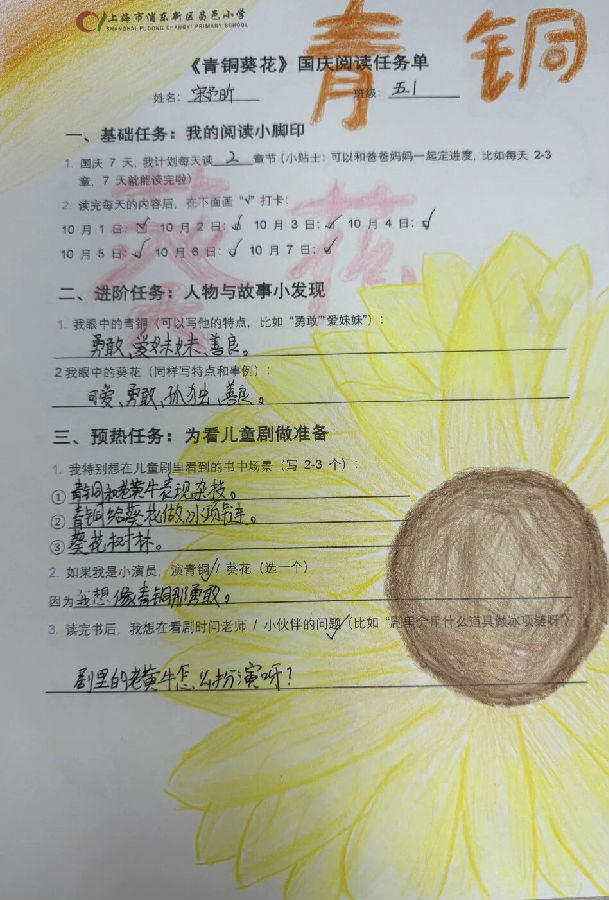 上海市浦东新区昌邑小学
SHANGHAI PUDONG CHANGYI PRIMARY SCHOOL
青铜
《青铜葵花》国庆阅读任务单
姓名：宋予昕 班级：五.1
一、基础任务：我的阅读小脚印
1. 国庆 7 天，我计划每天读 2 章节（小贴士：可以和爸爸妈妈一起定进度，比如每天 2-3
章，7 天就能读完啦）
2. 读完每天的内容后，在下面画 “√” 打卡：
葵花
10 月 1 日：√ 10 月 2 日：√ 10 月 3 日：√ 10 月 4 日：√
10 月 5 日：√ 10 月 6 日：√ 10 月 7 日：√
二、进阶任务：人物与故事小发现
1. 我眼中的青铜（可以写他的特点，比如 “勇敢”“爱妹妹”）：
勇敢、爱妹妹、善良。
2 我眼中的葵花（同样写特点和事例）：
可爱、勇敢、孤独、善良。
三、预热任务：为看儿童剧做准备
1. 我特别想在儿童剧里看到的书中场景（写 2-3 个）：
① 青铜和老黄牛表现杂技。
② 青铜给葵花做冰项链。
③ 葵花树林。
2. 如果我是小演员，演青铜√ / 葵花（选一个）
因为我想像青铜那勇敢。
3. 读完书后，我想在看剧时问老师 / 小伙伴的问题√（比如 “剧里会用什么道具做冰项链呀”）
剧里的老黄牛怎么扮演呀？